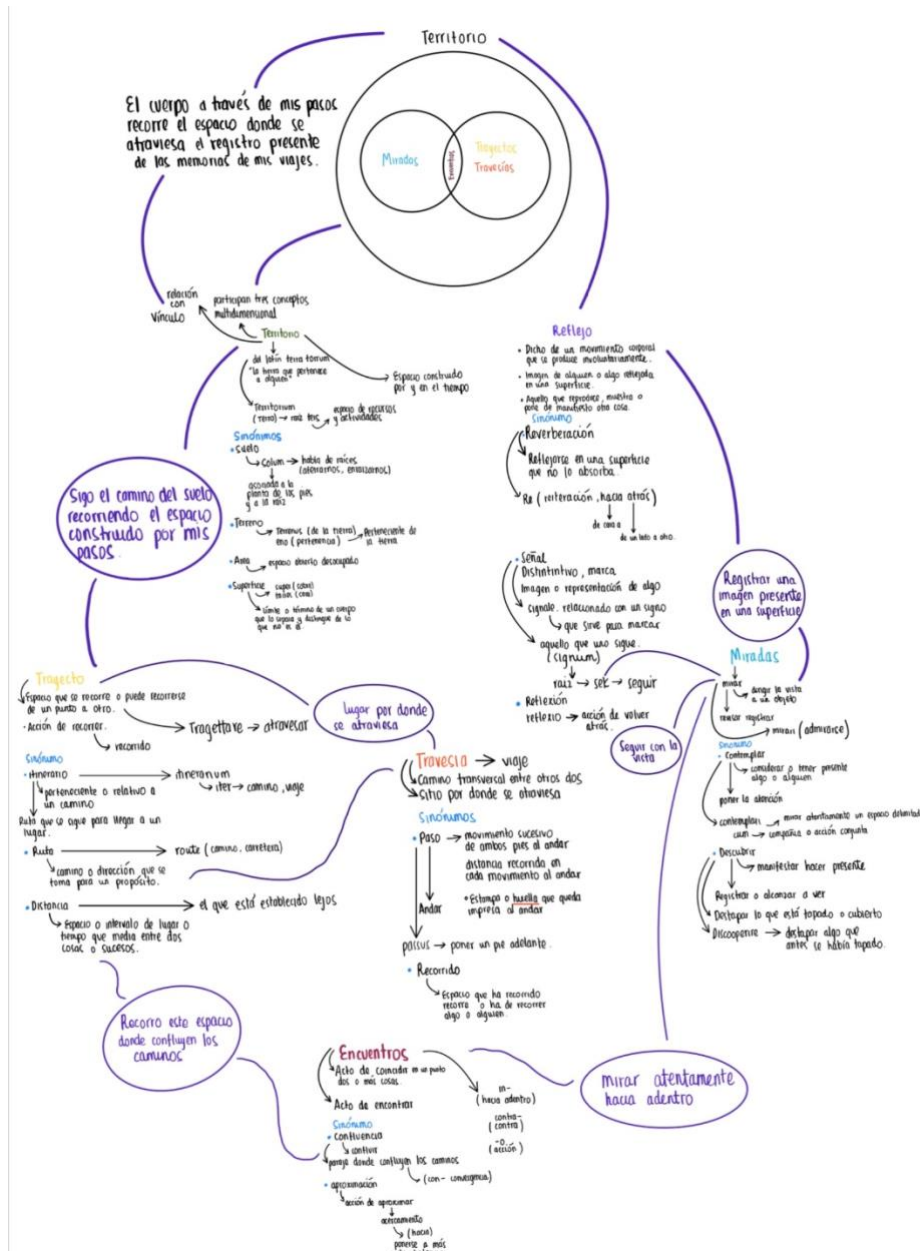 Territorio
El cuerpo a través de mis pasos
recorre el espacio donde se
atraviesa el registro presente
de las memorias de mis viajes.
Miradas
Encuentros
Trayectos
Travesías
relación
con
Vínculo
participan tres conceptos
multidimensional
Territorio
del latín terra torium
"la tierra que pertenece
a alguien"
Espacio construido
por y en el tiempo
Territorium
(terra) → raíz ters
espacio de recursos
y actividades
Sinónimos
• Suelo
Solum → habla de raíces
(aterrarnos, enraizarnos)
asociada a la
planta de los pies
y a la raíz
• Terreno
Terrenus (de la tierra)
eno (pertenencia)
Perteneciente de
la tierra
• Area
espacio abierto desocupado
• Superficie
super (sobre)
límite o término de un cuerpo
que lo separa y distingue de lo
que no es él.
Sigo el camino del suelo
recorriendo el espacio
construido por mis
pasos.
Reflejo
• Dicho de un movimiento corporal
que se produce involuntariamente.
• Imagen de alguien o algo reflejada
en una superficie.
• Aquello que reproduce, muestra o
pone de manifiesto otra cosa.
Sinónimo
• Reverberación
Reflejarse en una superficie
que no lo absorba.
Re (reiteración, hacia atrás)
de cara a
de un lado a otro.
• Señal
Distintintivo, marca
Imagen o representación de algo
signale. relacionado con un signo
que sirve para marcar
aquello que uno sigue.
(signum)
raiz → sek → seguir
• Reflexión
reflexio → acción de volver
atrás.
Registrar una
imagen presente
en una superficie
Miradas
mirar
dirigir la vista
a un objeto
revisar registrar
mirari (admirarse)
Sinónimo
• Contemplar
considerar o tener presente
algo o alguien
poner la atención
contemplari
mirar atentamente un espacio delimitad
cum → compañía o acción conjunta
• Descubrir
manifestar hacer presente
Registrar o alcanzar a ver
Destapar lo que está tapado o cubierto
Discooperire → destapar algo que
antes se había tapado.
Seguir con la
vista
Trayecto
Espacio que se recorre o puede recorrerse
de un punto a otro.
• Acción de recorrer.
recorrido
Tragettare → atravesar
Sinónimo
• itinerario → itinerarium
perteneciente o relativo a
un camino
iter → camino, viaje
Ruta que se sigue para llegar a un
lugar.
• Ruta → route (camino, carretera)
camino o dirección que se
toma para un propósito.
• Distancia → el que está establecido lejos
Espacio o intervalo de lugar o
tiempo que media entre dos
cosas o sucesos.
lugar por donde
se atraviesa
Travesía → viaje
Camino transversal entre otros dos
Sitio por donde se atraviesa
Sinónimos
• Paso → movimiento sucesivo
de ambos pies al andar
distancia recorrida en
cada movimiento al andar
• Estampa o huella que queda
impresa al andar
Andar
passus → poner un pie adelante.
• Recorrido
Espacio que ha recorrido
recorre o ha de recorrer
algo o alguien.
Recorro este espacio
donde confluyen los
caminos
Encuentros
Acto de coincidir en un punto
dos o más cosas.
Acto de encontrar
in-
(hacia adentro)
contra-
(contra)
-o.
(acción)
Sinónimo
• Confluencia
confluir
paraje donde confluyen los caminos
(con- convergencia)
• aproximación
acción de aproximar
acercamiento
(hacia)
ponerse a más
mirar atentamente
hacia adentro